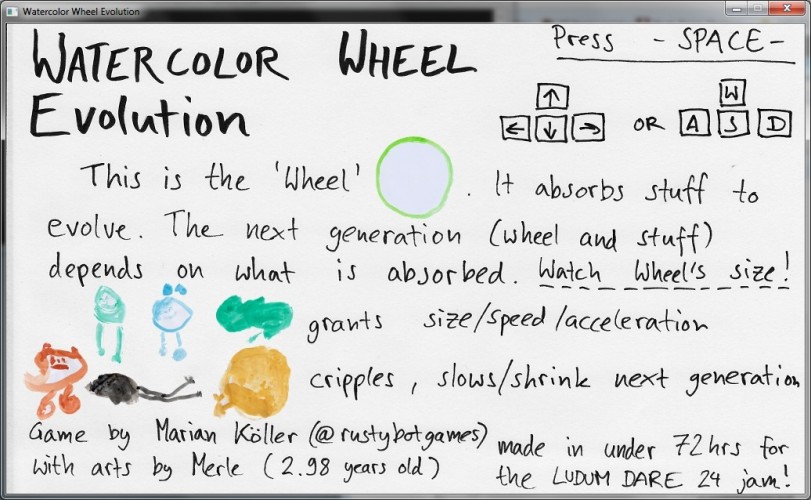 Watercolor Wheel Evolution
WATERCOLOR WHEEL
Evolution
Press - SPACE -
↑
← ↓ → OR A S D
W
This is the 'Wheel' . It absorbs stuff to
evolve. The next generation (wheel and stuff)
depends on what is absorbed. Watch Wheel's size!
grants size/speed/acceleration
cripples, slows/shrink next generation
Game by Marian Köller (@rustybotgames)
with arts by Merle (2.98 years old)
made in under 72hrs for
the LUDUM DARE 24 jam!